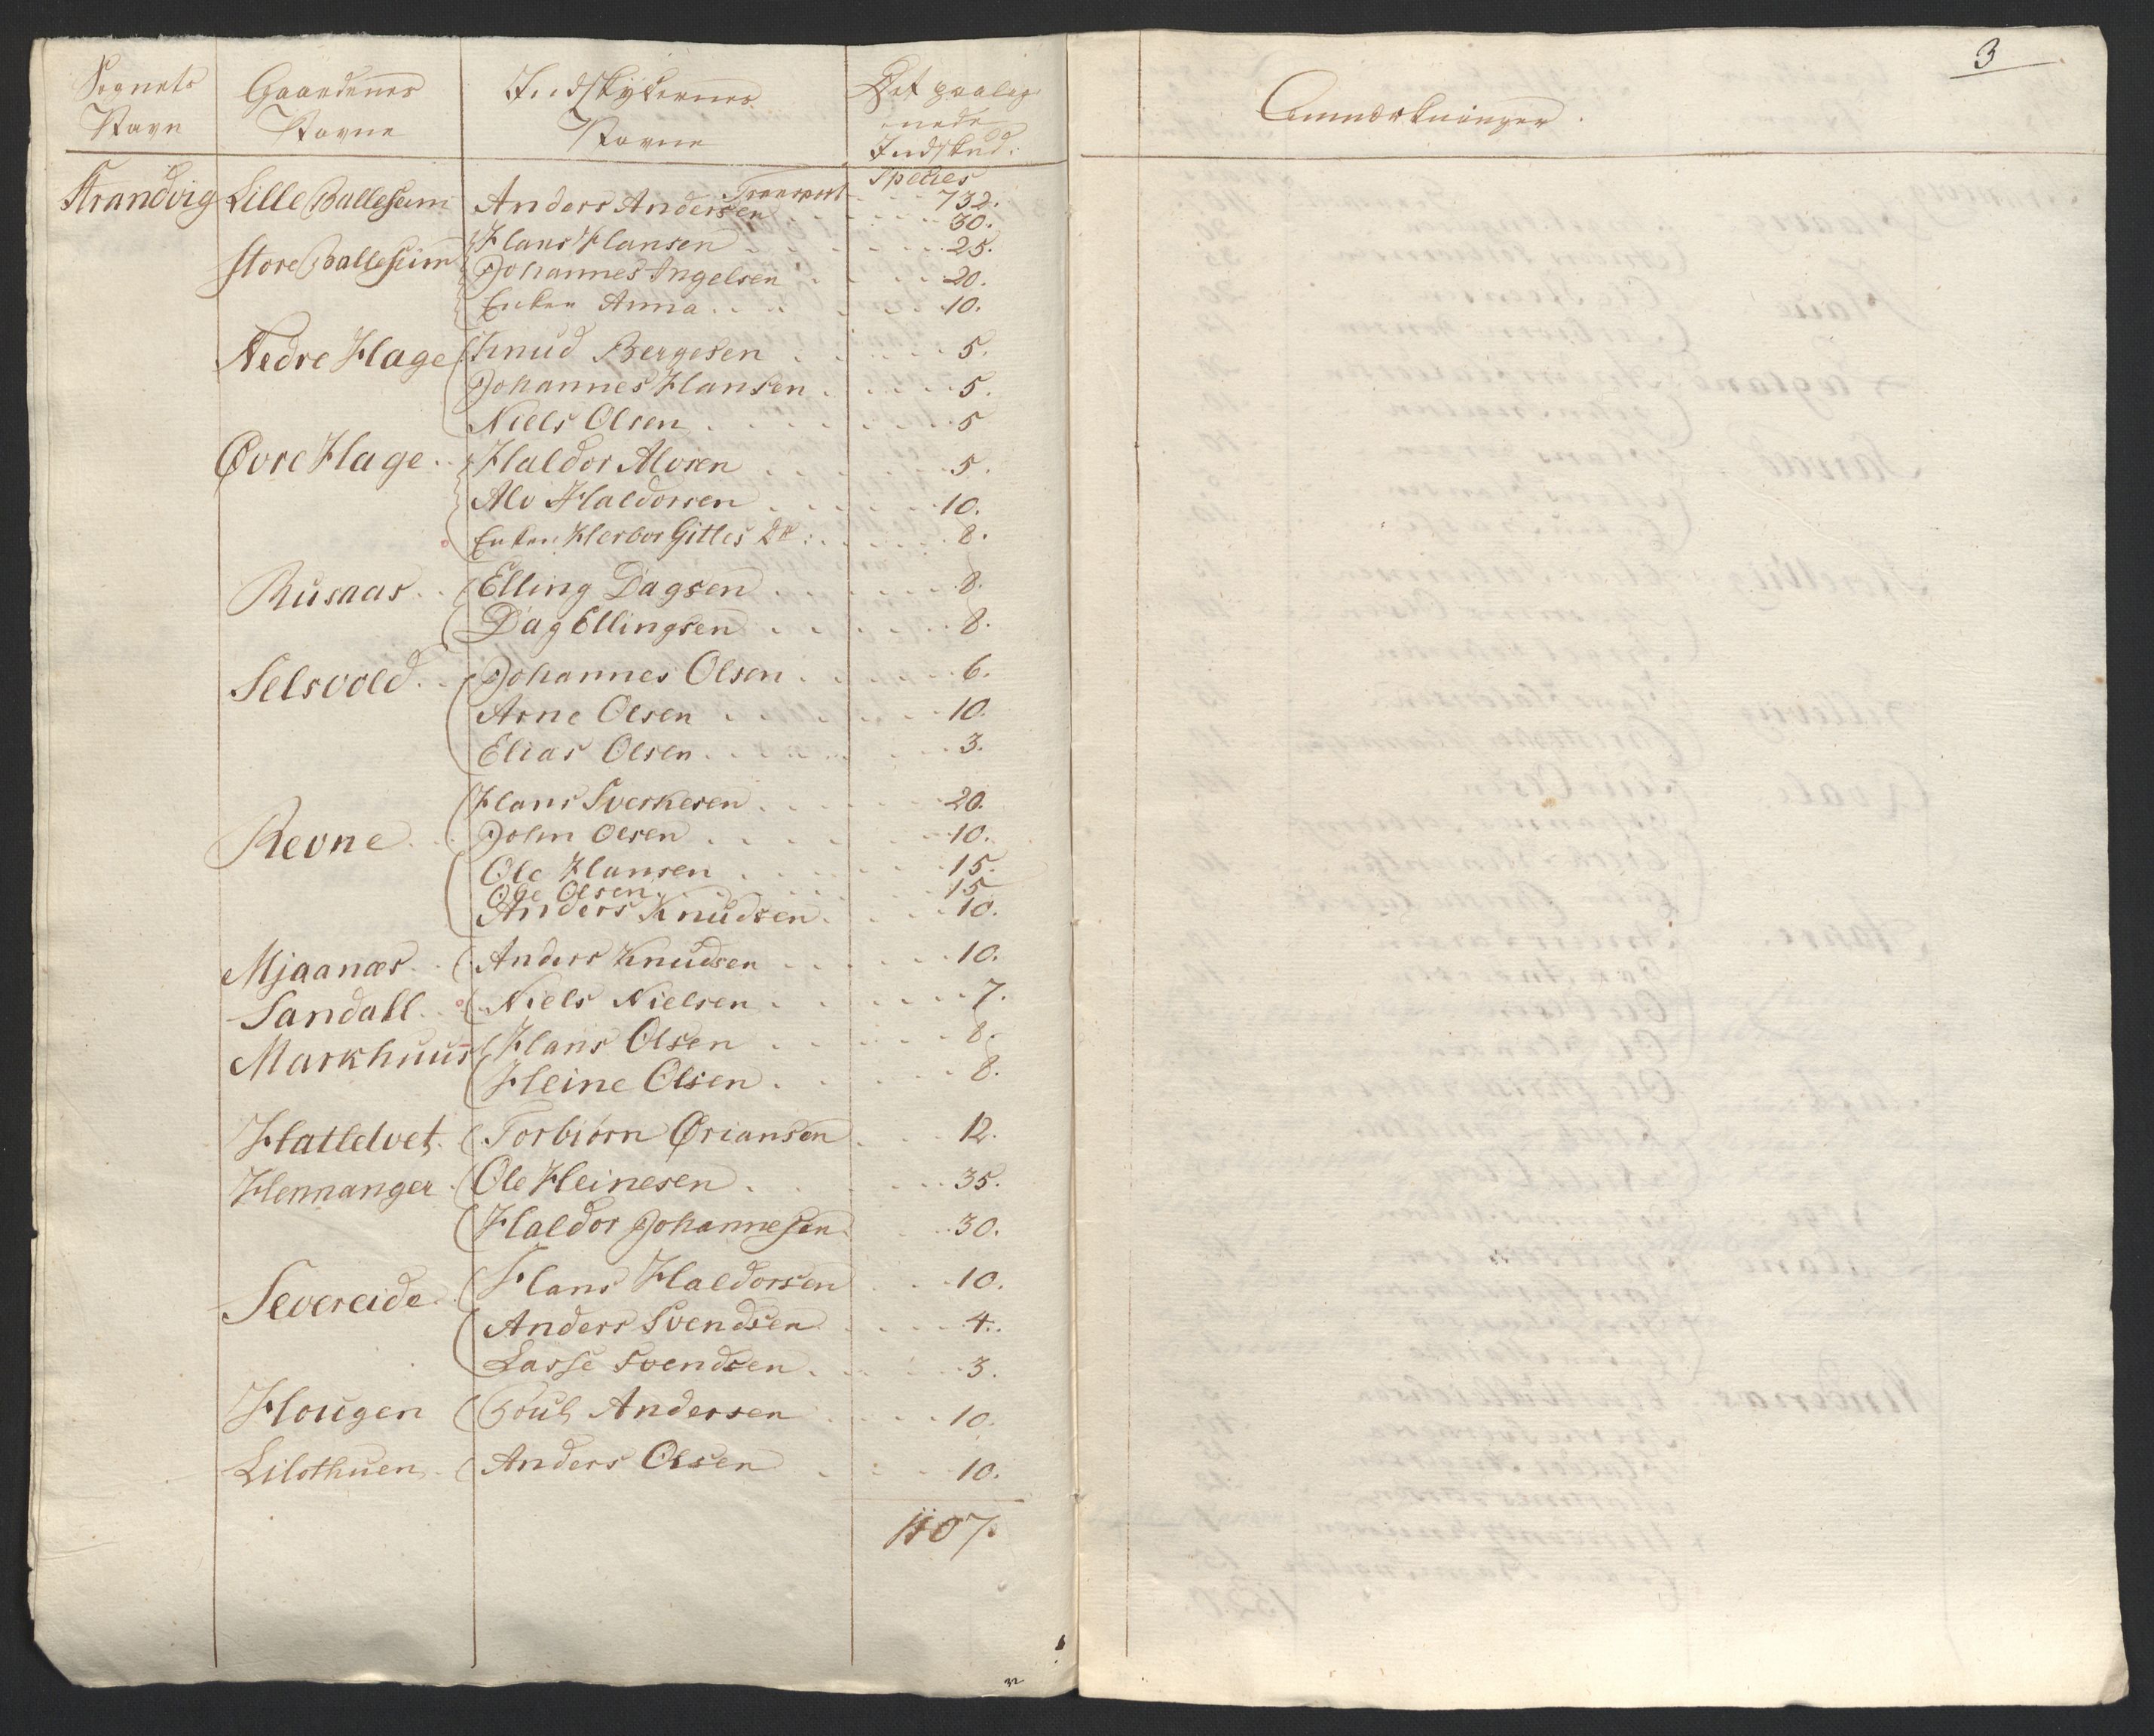 Sognets Navn | Gaardenes Navne | Indskyternes Navne | Det paalignede Indskud.
Species
Transport 732.
Strandvig Lille Ballesum Anders Andersen 30.
Store Ballesum Hans Hansen 25.
Johannes Ingelsen 20.
Enken Anna 10.
Nedre Hage Knud Bergesen 5.
Johannes Hansen 5.
Niels Olsen 5
Øvre Hage Haldor Alvsen 5.
Alv Haldorsen 10.
Enken Herbor Gitles Dtr: 8.
Rusaas Elling Dagsen 8.
Dag Ellingsen 8.
Selsvold Johannes Olsen 6.
Arne Olsen 10.
Elias Olsen 3.
Hans Sverkesen 20.
Revne John Olsen 10.
Ole Hansen 15.
Ole Olsen 15
Anders Knudsen 10.
Mjaanæs Anders Knudsen 10.
Sandall Niels Nielsen 7.
Markhuus Hans Olsen 8.
Heine Olsen 8.
Hatlelvet Torbiørn Ørjansen 12.
Hennanger Ole Heinesen 35.
Haldor Johannesen 30.
Severeide Hans Haldorsen 10.
Anders Svendsen 4.
Lasse Svendsen 3.
Hougen Poul Andersen 10.
Lilothuen Anders Olsen 10.
1107.
3
Anmærkninger.